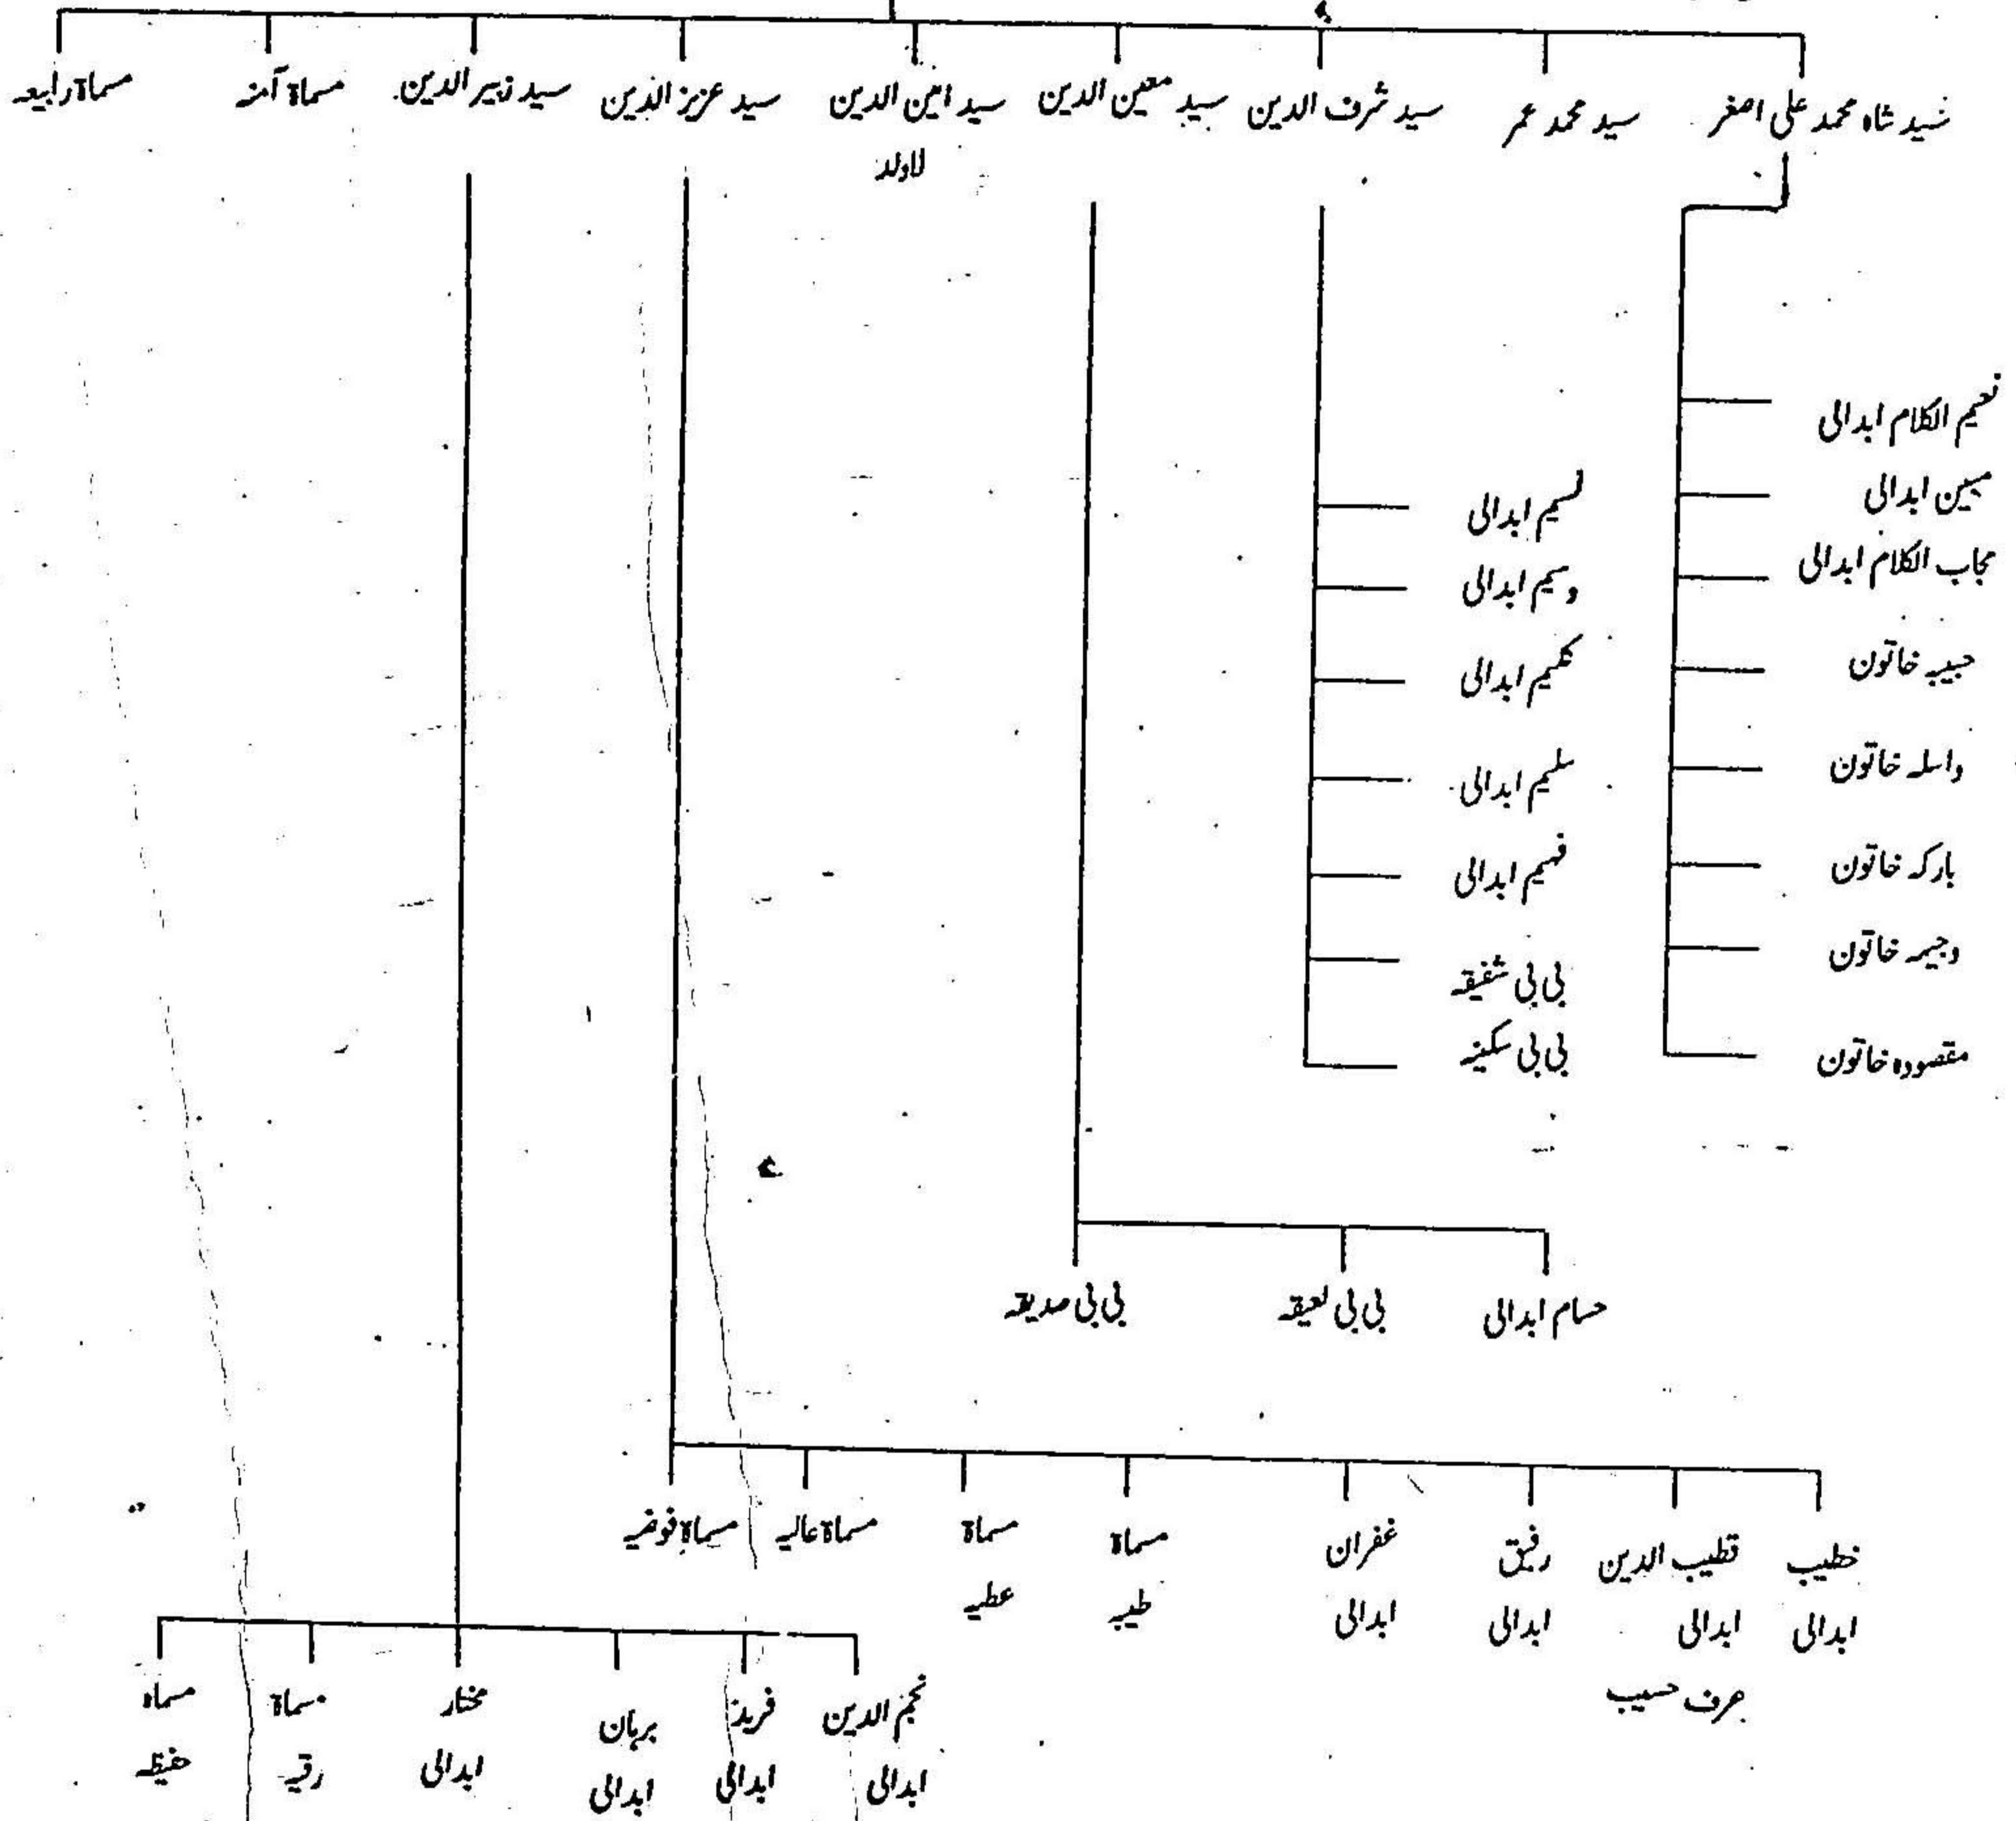 سید شاہ محمد علی اصغر
سید محمد عمر
سید شرف الدین
سید معین الدین
سید امین الدین
لاولد
سید عزیز الدین
سید زبیر الدین
مسماۃ آمنہ
مسماۃ رابعہ
نعیم الکلام ابدالی
مبین ابدالی
مجاب الکلام ابدالی
حبیبہ خاتون
واسلہ خاتون
بارکہ خاتون
وجیہہ خاتون
مقصودہ خاتون
نسیم ابدالی
وسیم ابدالی
کلیم ابدالی
سلیم ابدالی
فہیم ابدالی
بی بی شفیقہ
بی بی سکینہ
حسام ابدالی
بی بی لعیقہ
بی بی صدیقہ
خطیب
ابدالی
قطیب الدین
ابدالی
عرف حسیب
رفیق
ابدالی
غفران
ابدالی
مسماۃ
طیبہ
مسماۃ
عطیہ
مسماۃ عالیہ
مسماۃ
نجم الدین
ابدالی
فرید
ابدالی
برہان
ابدالی
مختار
ابدالی
مسماۃ
رقیہ
مسماہ
حفیظہ